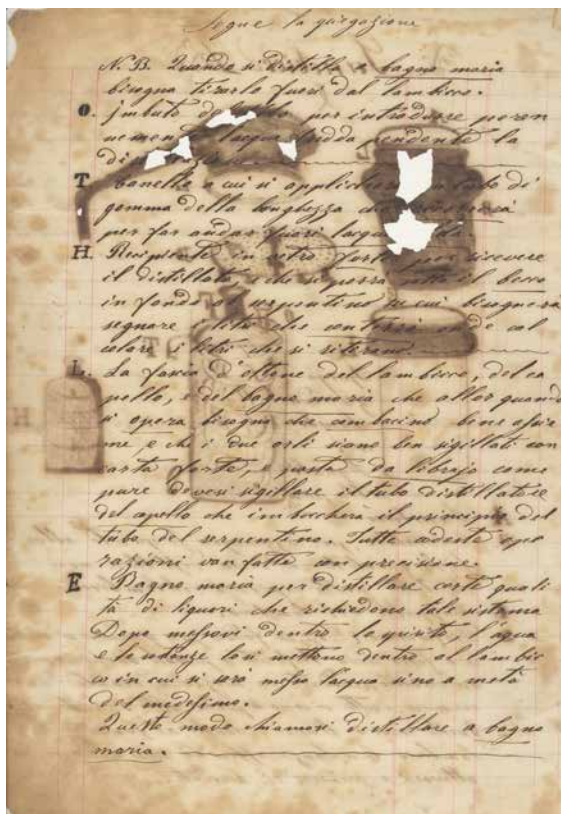 Segue la spiegazione
N.B. Quando si distilla a bagno maria
bisogna tirarlo fuori dal lambicco.
O. Imbuto per introdurre peren
nemente l'acqua fredda pendente la
T. Canello a cui si applicherà un tubo di
gomma della lunghezza che
per far andar fuori l'acqua
H. Recipiente in vetro forte per ricevere
il distillato, che si porrà sotto il becco
in fondo al serpentino su cui bisognerà
segnare i litri che conterrà onde cal
colare i litri che si ritirano.
L. La fascia d'ottone del lambicco, del ca
pello, e del bagno maria che allor quando
si opera bisogna che combacino bene assie
me, e che i due orli siano ben sigillati con
carta forte, e pasta da librajo come
pure devesi sigillare il tubo distillatore
del capello che imboccherà il principio del
tubo del serpentino. Tutte codeste ope
razioni van fatte con precisione.
E Bagno maria per distillare certe quali
tà di liquori che richiedono tale sistema
Dopo messovi dentro lo spirito, l'aqua
e le sostanze lo si mettono dentro al lambic
co in cui si sarà messo l'acqua sino a metà
del medesimo.
Questo modo chiamasi distillare a bagno
maria.